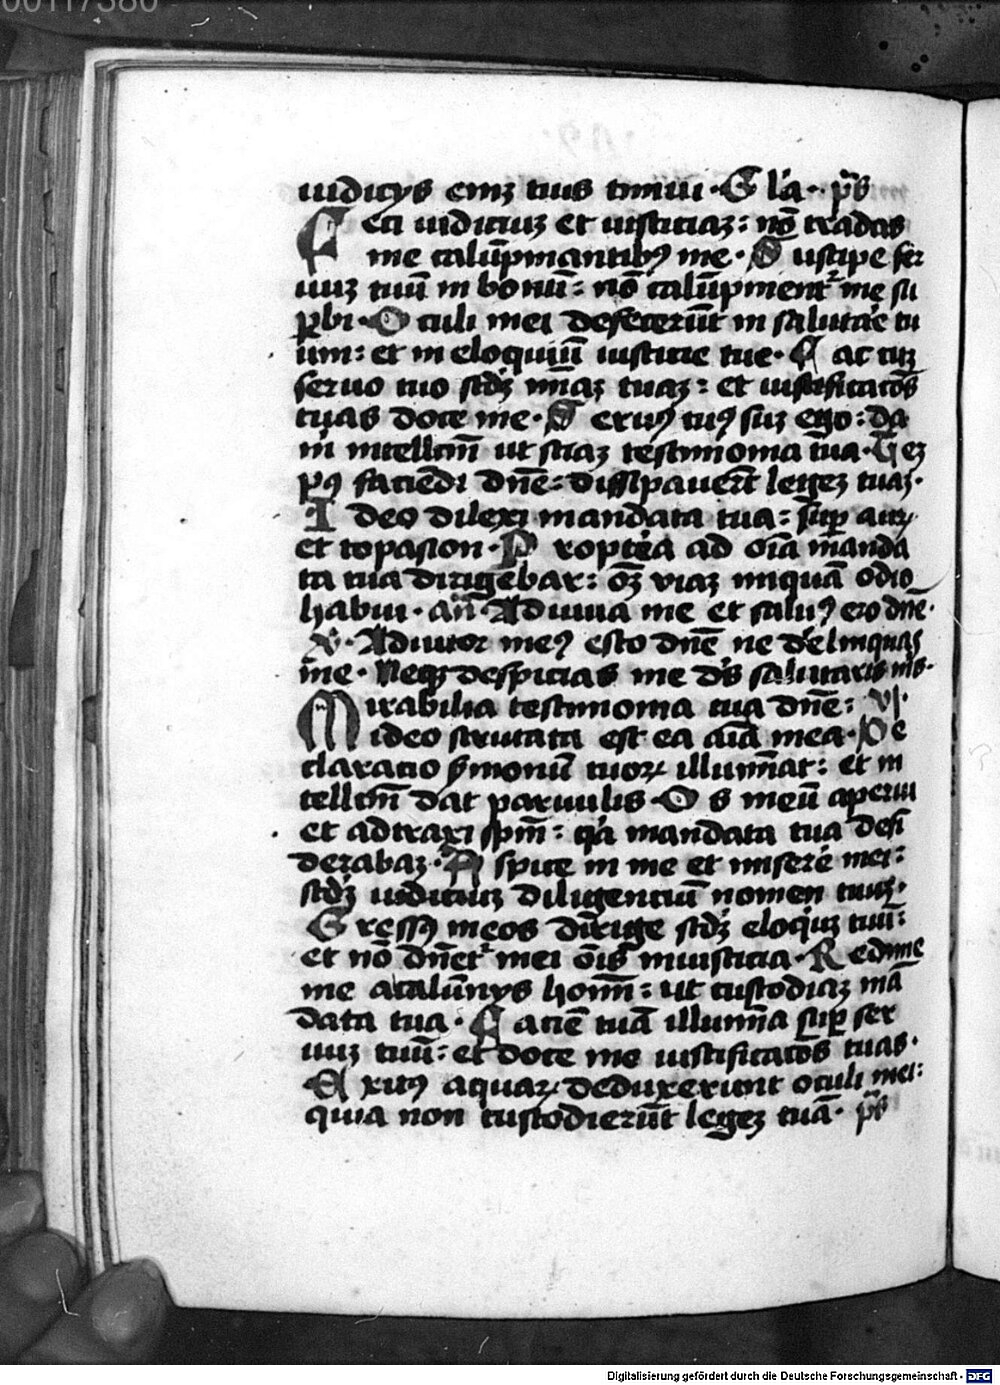 00117380
iudicijs enī tuis timui · Gl'ia · p̄s
Feci iudiciuʒ et iusticiaʒ : nō tradas
me calūpniantibꝰ me · Suscipe ser
uuʒ tuū in bonū : nō calūpnient᷑ me su
ꝑbi · Oculi mei defecerūt in salutar̄e tu
um : et in eloquiū iusticie tue · Fac cuʒ
seruo tuo scd̄ʒ mīaʒ tuaʒ : et iustificatōēs
tuas doce me · Seruꝰ tuꝰ suʒ ego : da
m̄ intellcm̄ ut sciaʒ testimonia tua · Tēʒ
pꝰ faciedi dn̄e : dissipauerūt legeʒ tuaʒ ·
Ideo dilexi mandata tua : suꝑ auꝝ
et topasion · Propter̄ea ad oīa manda
ta tua dirigebar : oēʒ viaʒ iniquā odio
habui · an̄ Adiuua me et saluꝰ ero dn̄e ·
℣ · Adiutor meꝰ esto dn̄e ne d'elinquas
me · Neqʒ despicias me ds̄ salutaris ms̄ ·
Mirabilia testimonia tua dn̄e :
ideo scrutata est ea aīa mea · De
claratio ẜmonū tuoꝝ illumīat : et in
tellcm̄ dat paruulis · Os meū aperui
et adtraxi sp̄m : q̄a mandata tua desi
derabaʒ · Aspice in me et miser̄e mei :
scd̄ʒ iudiciuʒ diligentiū nomen tuuʒ ·
Gressꝰ meos dirige scd̄ʒ eloqiuʒ tuū :
et nō dn̄et᷑ mei oīs iniusticia · Redime
me acalūnijs hoīm : ut custodiaʒ mā
data tua · Faciē tuā illumīa suꝑ ser
uuʒ tuū : et doce me iustificatōēs tuas ·
Exitꝰ aquaꝝ deduxerunt oculi mei :
quia non custodierūt legeʒ tuā · p̄s
Digitalisierung gefördert durch die Deutsche Forschungsgemeinschaft - DFG